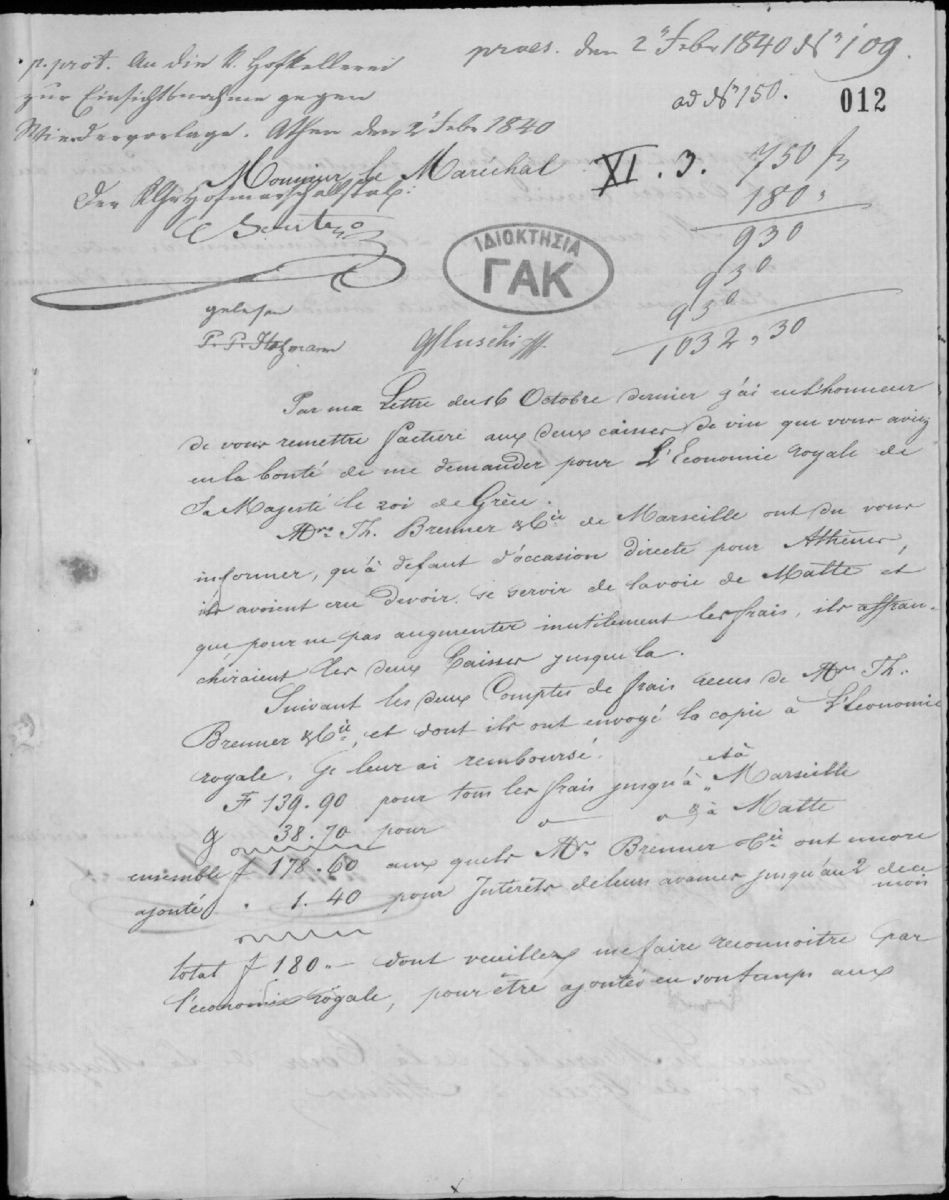 praes. den 2 Febr 1840 N 109.
p. prot. An die K. Hofkellerei
zur Einsichtsnahme gegen
Wiedervorlage. Athen den 2 Febr 1840
ad N 150.
012
Monsieur le Marechal
XI. 3.
750 f
180 "
930
930
930
1032,30
ΙΔΙΟΚΤΗΣΙΑ
ΓΑΚ
gelesen
Par ma Lettre du 16 Octobre dernier j'ai eu l'honneur
de vous remettre facture aux deux caisses de vin que vous aviez
eu la bonté de me demander pour L'Economie royale de
Sa Majesté le roi de Grèce.
Mrs Th. Brenner & Cie de Marseille ont du vous
informer, qu'à defaut d'occasion directe pour Athènes,
ils avoient cru devoir se servir de la voie de Malte et
que pour ne pas augmenter inutilement les frais, ils affran-
chiraient les deux Caisses jusque la.
Suivant les deux Comptes de frais recus de Mrs Th.
Brenner & Cie, et dont ils ont envoyé la copie à L'Economie
royale. Je leur ai remboursé.
F 139.90 pour tous les frais jusqu'à et à Marseille
38.70 pour " " & à Malte
ensemble f 178.60 aux quels Mrs. Brenner & Cie ont encore
ajouté . 1.40 pour Interêts de leurs avances jusqu'au 2 de ce
mois
total f 180.- dont veuillez me faire reconnoitre par
l'economie royale, pour être ajoutés en son temps aux